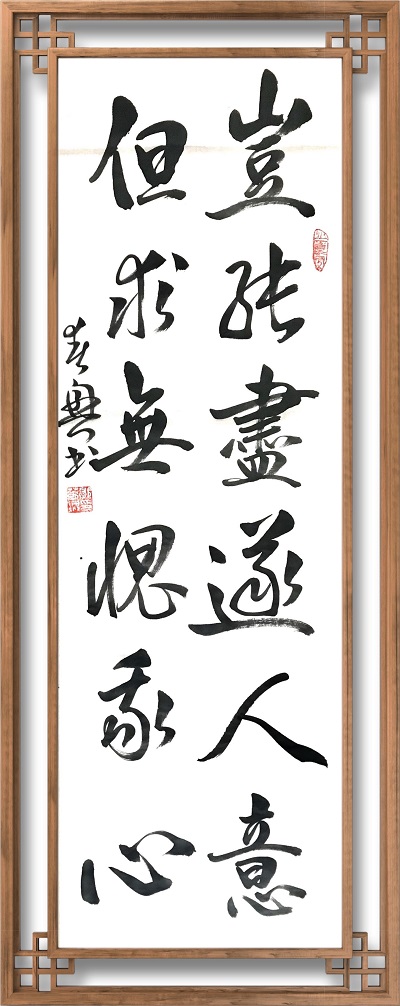 豈能盡遂人意
但求無愧我心
春興书